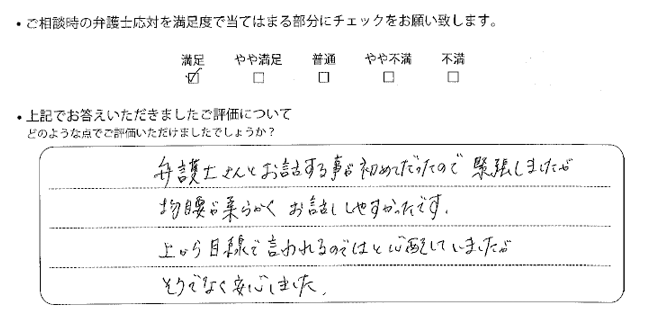 ・ご相談時の弁護士応対を満足度で当てはまる部分にチェックをお願い致します。
満足 やや満足 普通 やや不満 不満
☑ □ □ □ □
・上記でお答えいただきましたご評価について
どのような点でご評価いただけましたでしょうか？
弁護士さんとお話する事が初めてだったので 緊張しましたが
物腰が柔らかく お話ししやすかったです。
上から目線で言われるのではと心配していましたが
そうでなく安心しました。